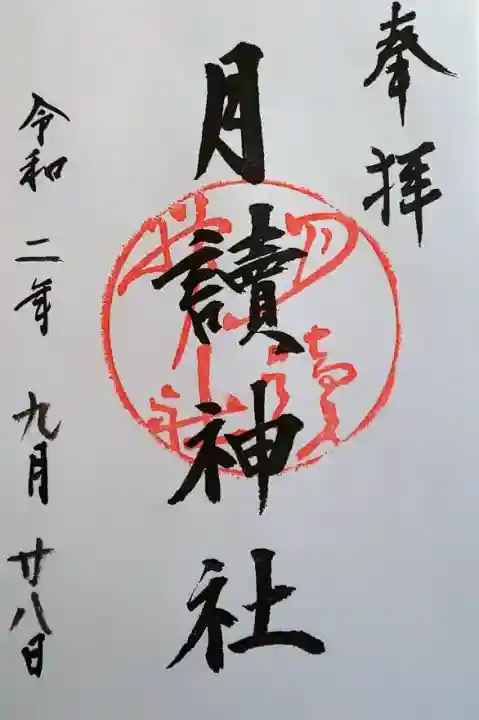 奉拝
月讀神社
令和二年九月廿八日